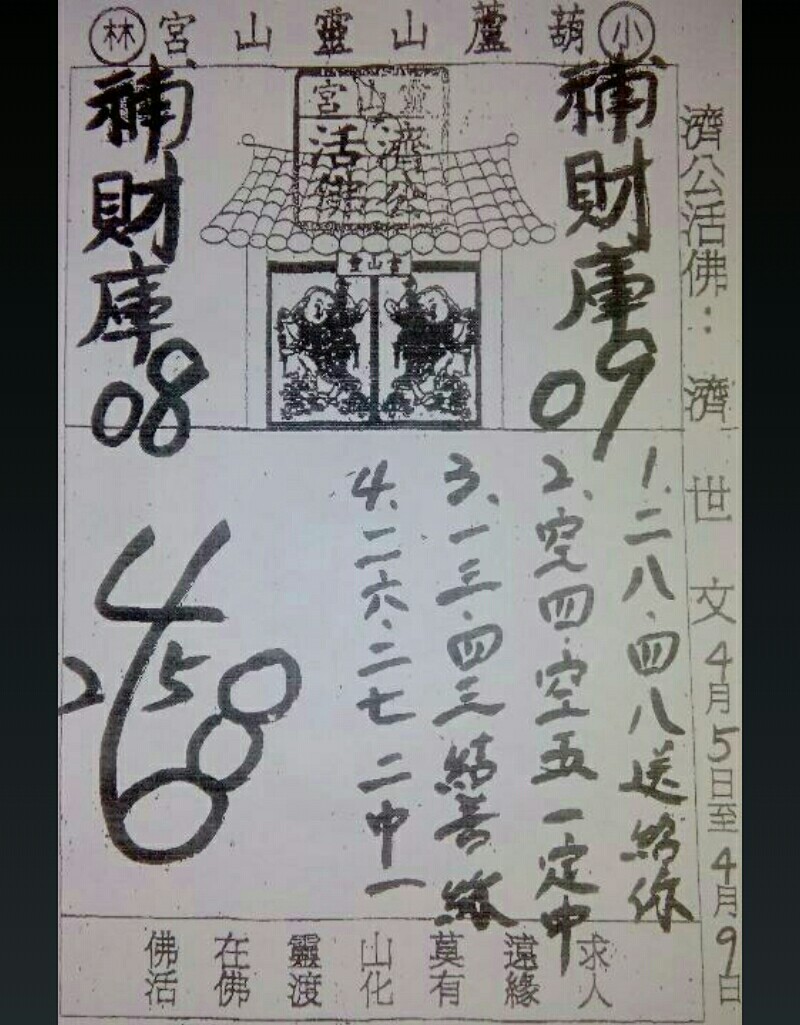 小葫蘆山靈山宮林
濟公活佛：濟世文4月5日至4月9日
補財庫09
靈山宮
濟公
活佛
靈山宮
補財庫08
1、二八．四八送給你
2、空四．空五一定中
3、一三．四三結善緣
4、二六．二七二中一
4
2 5 8
6
佛在靈山莫遠求
活佛渡化有緣人